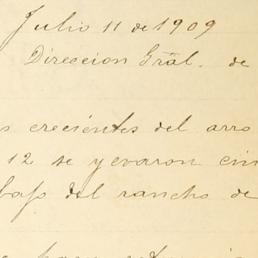 Julio 11 de 1909
Direccion Gral. de
s crecientes del arro
12 se yevaron cin
bajo del rancho de